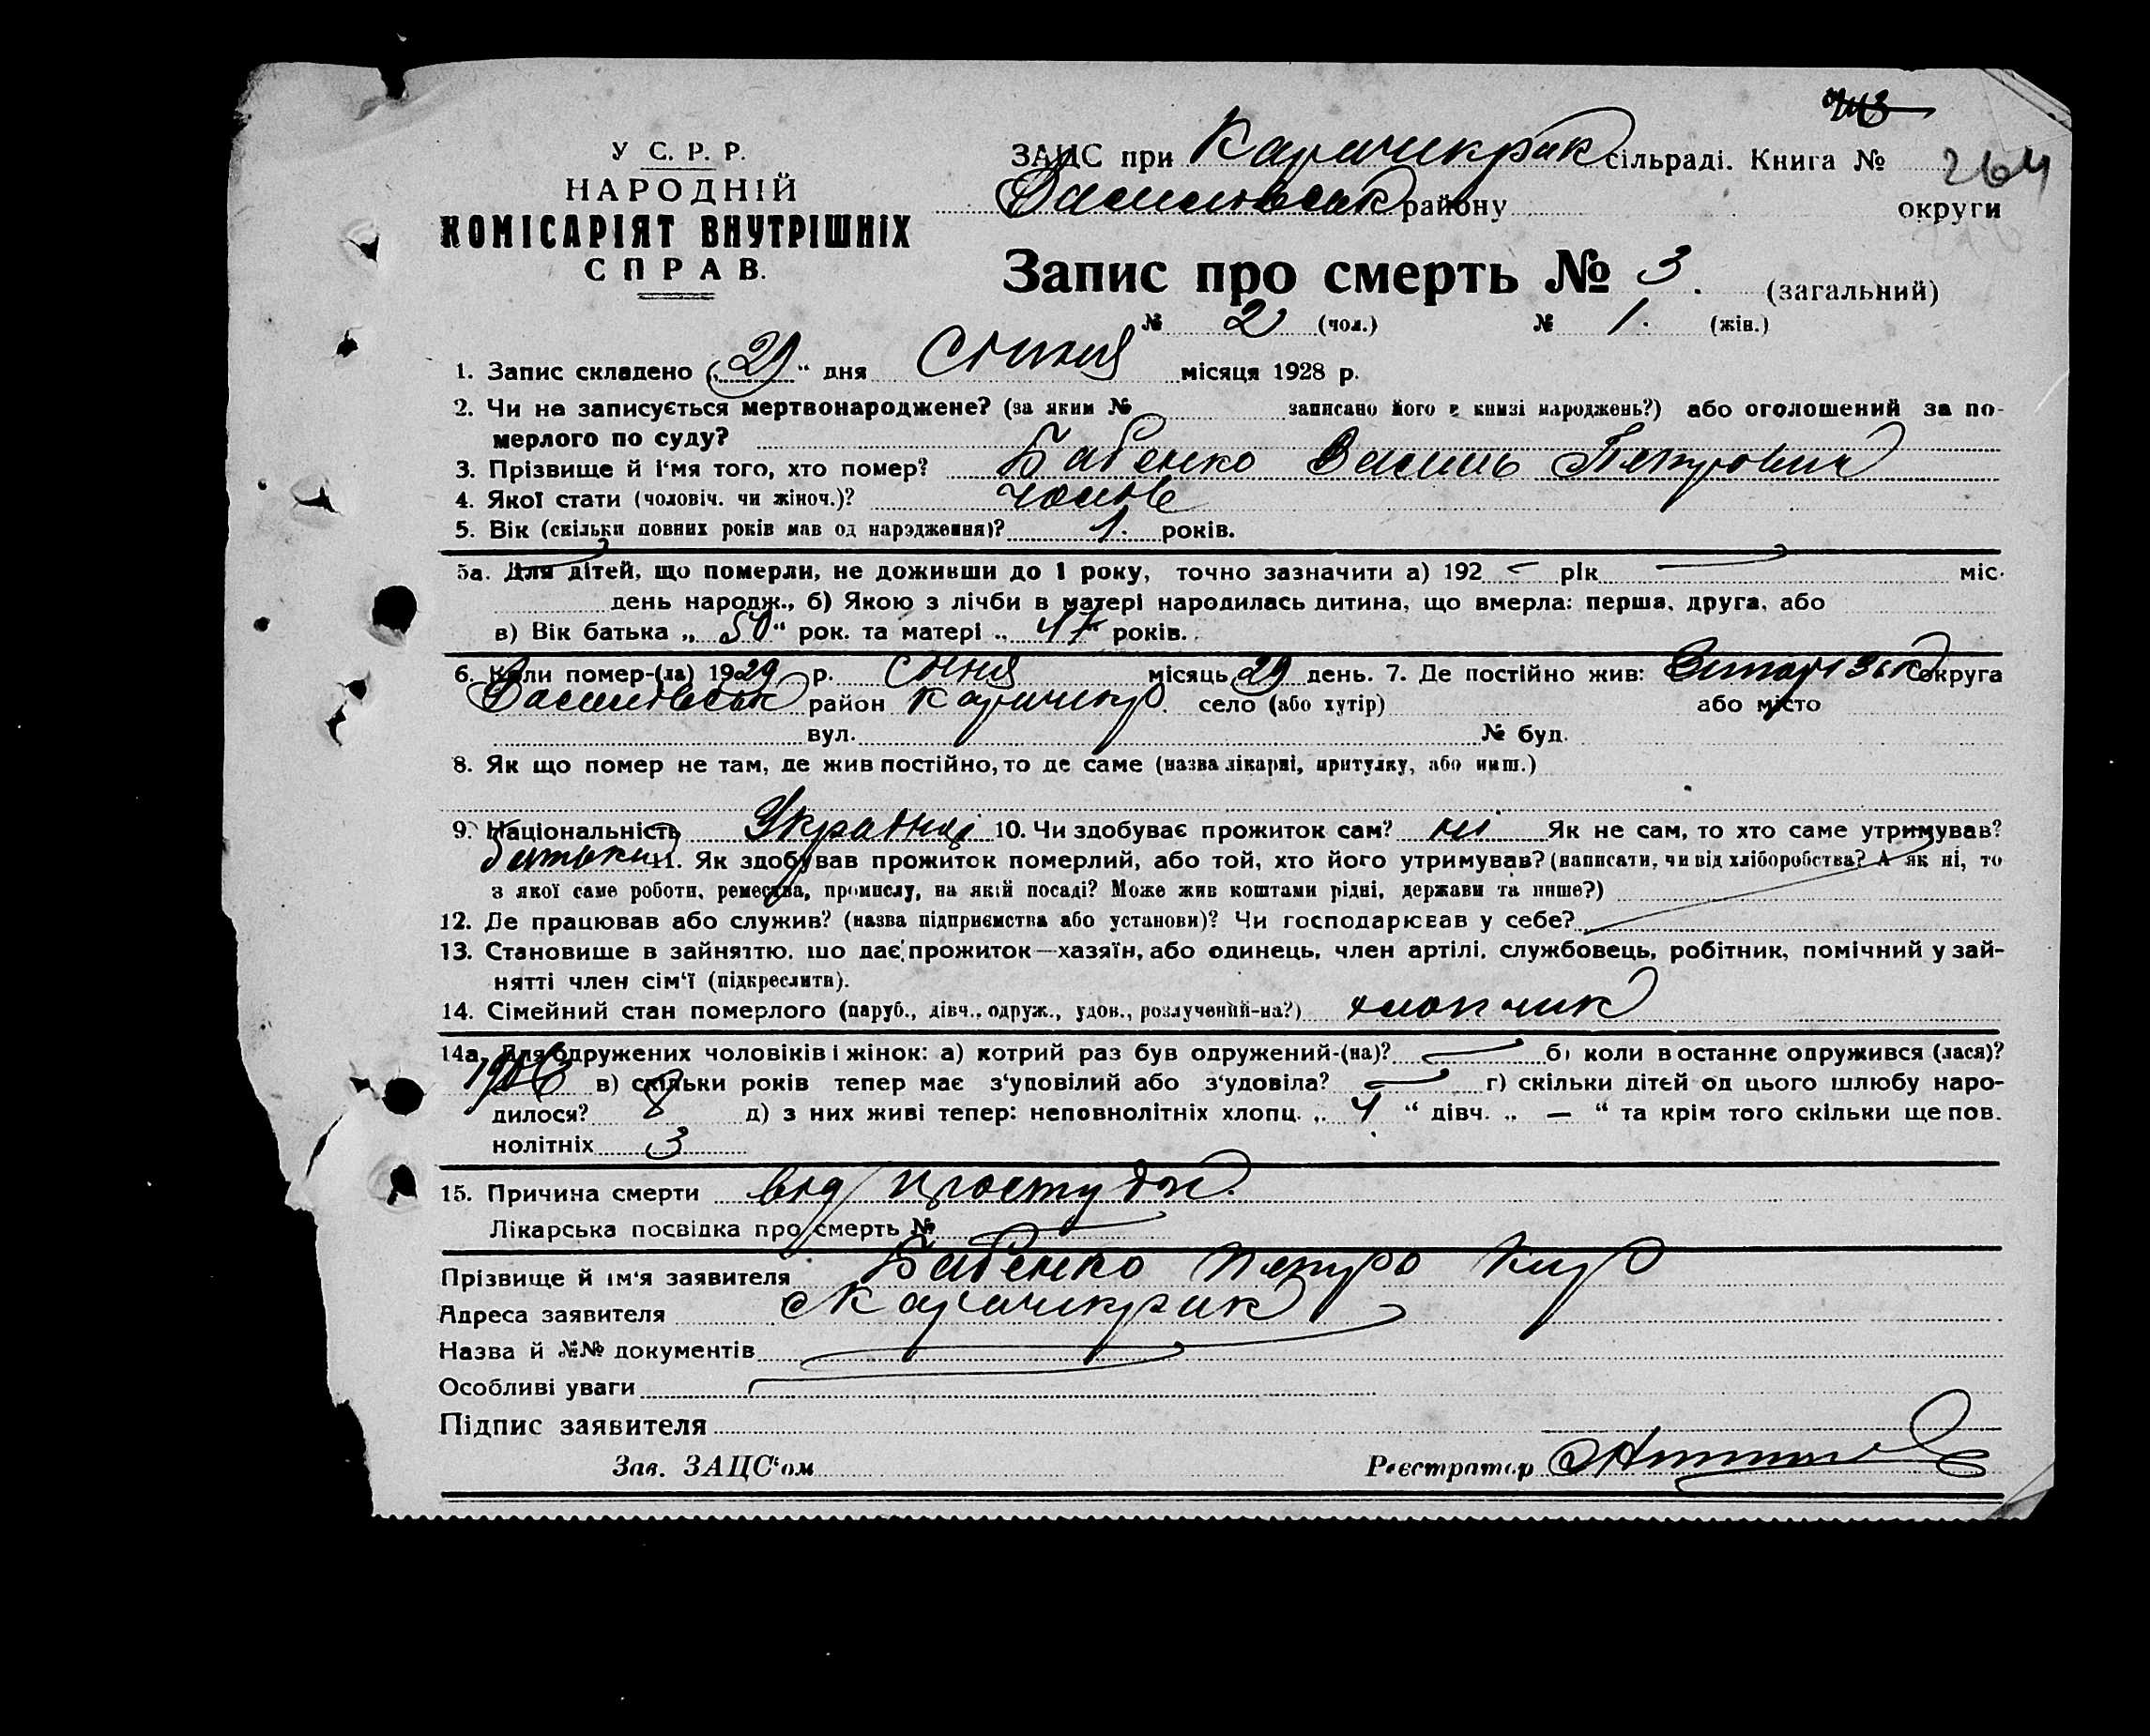 У С. Р. Р.
НАРОДНІЙ
КОМІСАРІЯТ ВНУТРІШНІХ
СПРАВ.
ЗАЦС при Карачикрак сільраді. Книга № 264
Василівськ району округи
Запис про смерть № 3. (загальний)
№ 2 (чол.) № 1. (жін.)
1. Запис складено „29“ дня Січня місяця 1928 р.
2. Чи не записується мертвонароджене? (за яким № записано його в книзі народжень?) або оголошений за по-
мерлого по суду?
3. Прізвище й і'мя того, хто помер? Бабенко Василь Петрович
4. Якої стати (чоловіч. чи жіноч.)? чолов
5. Вік (скільки повних років мав од нарэдження)? 1. років.
5а. Для дітей, що померли, не доживши до 1 року, точно зазначити а) 192 – рік – міс.
день народж., б) Якою з лічби в матері народилась дитина, що вмерла: перша, друга, або
в) Вік батька „50“ рок. та матері „47“ років.
6. Коли помер-(ла) 1929 р. січня місяць 29 день. 7. Де постійно жив: Запорізьк округа
Василівськ район Карачикр. село (або хутір) або місто
вул. № буд.
8. Як що помер не там, де жив постійно, то де саме (назва лікарні, притулку, або инш.)
9. Національність Українці 10. Чи здобуває прожиток сам? ні Як не сам, то хто саме утримував?
батьки 11. Як здобував прожиток померлий, або той, хто його утримував? (написати, чи від хліборобства? А як ні, то
з якої саме роботи, ремества, промислу, на якій посаді? Може жив коштами рідні, держави та инше?)
12. Де працював або служив? (назва підприємства або установи)? Чи господарював у себе?
13. Становище в зайняттю, що дає прожиток—хазяїн, або одинець, член артілі, службовець, робітник, помічний у зай-
нятті член сім'ї (підкреслити).
14. Сімейний стан померлого (паруб., дівч., одруж., удов., розлучений-на?) хлопчик
14а. Для одружених чоловіків і жінок: а) котрий раз був одружений-(на)? – б) коли в останне одружився (лася)?
в) скільки років тепер має з'уповілий або з'удовіла? – г) скільки дітей од цього шлюбу наро-
дилося? 8 д) з них живі тепер: неповнолітніх хлопц. „4“ дівч. „—“ та крім того скільки ще пов.
нолітніх 3
15. Причина смерти від простуди.
Лікарська посвідка про смерть №
Прізвище й ім'я заявителя Бабенко Петро Кир
Адреса заявителя с Карачикрак
Назва й №№ документів
Особливі уваги
Підпис заявителя
Зав. ЗАЦС'ом Реєстратор